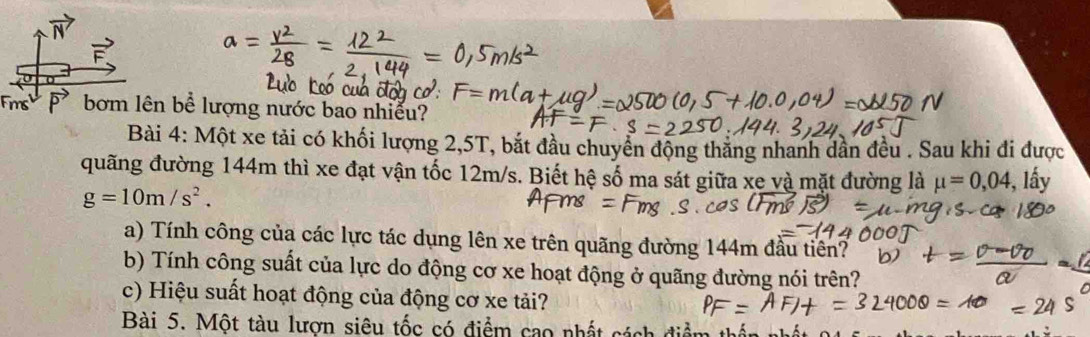 N
F
Fms P
a = v²/2s = 12²/2,144 = 0,5m/s²
của động cơ: F = m(a+µg) = 2500(0,5+10.0,04) = 2250 N
bơm lên bể lượng nước bao nhiêu?
AF = F.S = 2250.144. 3,24.10⁵J
Bài 4: Một xe tải có khối lượng 2,5T, bắt đầu chuyển động thẳng nhanh dần đều . Sau khi đi được
quãng đường 144m thì xe đạt vận tốc 12m/s. Biết hệ số ma sát giữa xe và mặt đường là µ = 0,04, lấy
g = 10m / s² .
AFms = Fms.S.cos(Fms,S) = µ.mg.s.cos 180
= -144 000J
a) Tính công của các lực tác dụng lên xe trên quãng đường 144m đầu tiên?
b) t = v-v0/a =
b) Tính công suất của lực do động cơ xe hoạt động ở quãng đường nói trên?
= 24 s
c) Hiệu suất hoạt động của động cơ xe tải?
PF = AF/t = 324000 =
Bài 5. Một tàu lượn siêu tốc có điểm cao nhất cách điểm thấp nhất